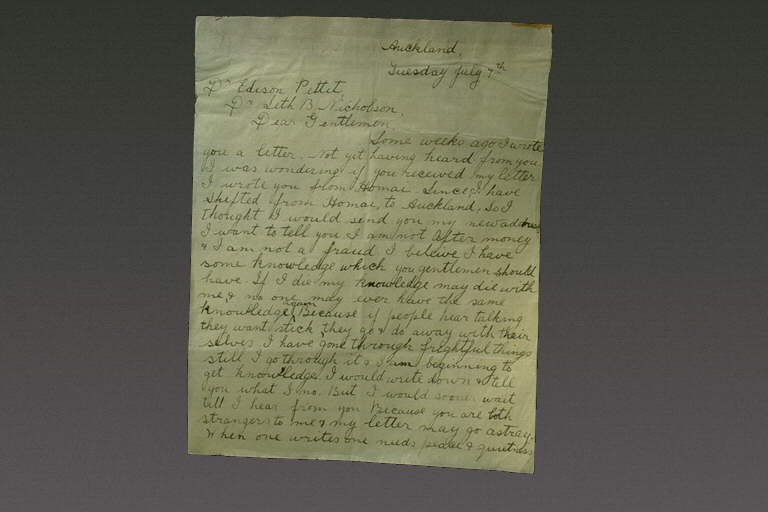 Auckland,
Tuesday July 7th
Dr Edison Pettit,
Dr Seth B. Nicholson,
Dear Gentlemen,
Some weeks ago I wrote
you a letter. Not yet having heard from you
I was wondering if you received my letter
I wrote you from Homai. Since I have
shifted from Homai, to Auckland, so I
thought I would send you my new address
I want to tell you I am not after money
& I am not a fraud I believe I have
some knowledge which you gentlemen should
have. If I die my knowledge may die with
me, & no one may ever have the same
knowledge again Because if people hear talking
they want stick they go & do away with their
selves. I have gone through frightful things
still I go through it & I am beginning to
get knowledge. I would write down & tell
you what I no. But I would sooner wait
till I hear from you Because you are both
strangers to me & my letter may go astray.
When one writes one needs peace & quietness